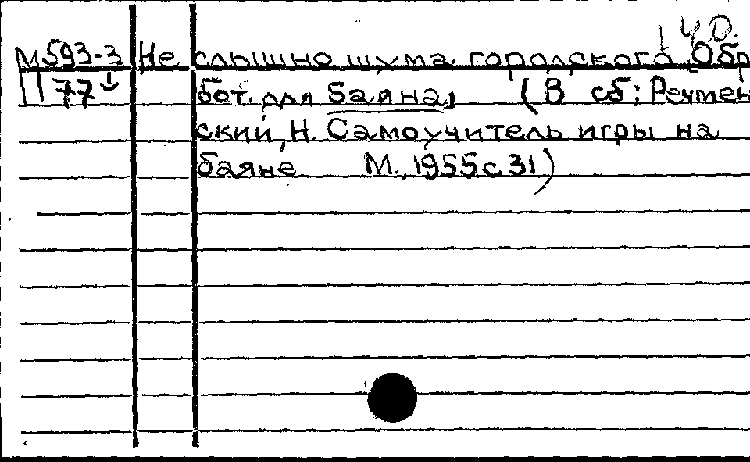 140.
М593-3 Не слышно шума городского. Обр
77 бот. для баяна, (В сб: Речмен
ский, Н. Самоучитель игры на
баяне М., 1955 с. 31)